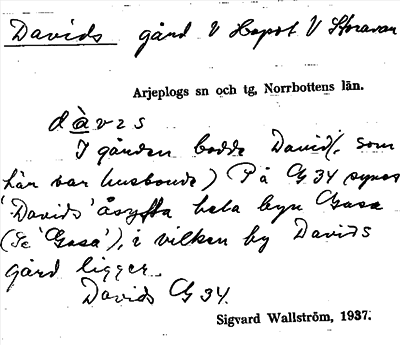 Davids gård V Hapst V Storavan
Arjeplogs sn och tg, Norrbottens län.
dàvɪs
I gården bodde David(, som
här var husbonde) På G 34 synes
'Davids' åsyfta hela byn Gasa
(Se 'Gasa'), i vilken by Davids
gård ligger.
Davids G 34.
Sigvard Wallström, 1937.